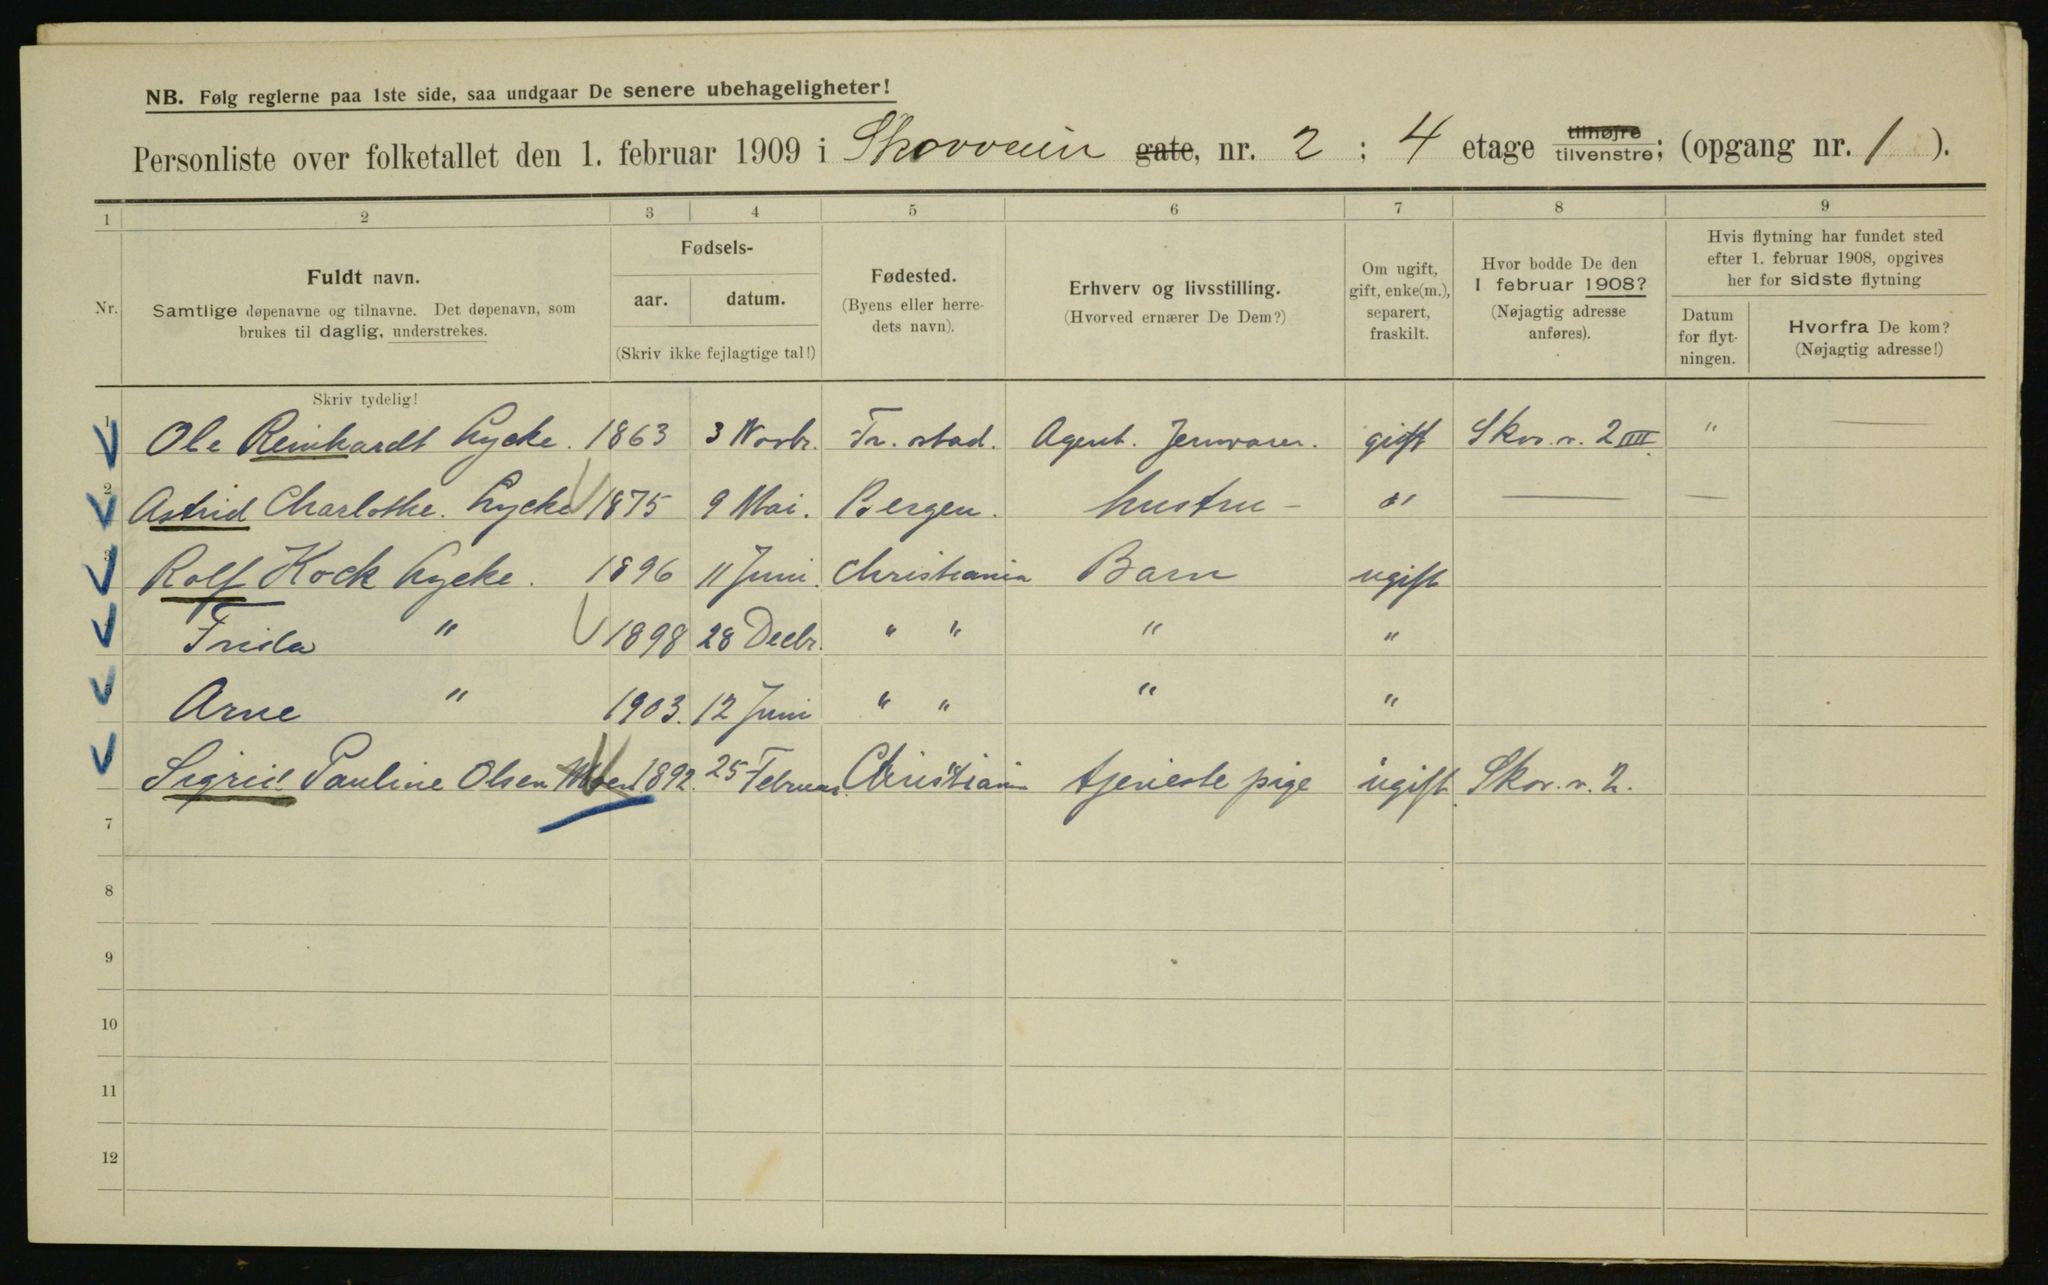 NB. Følg reglerne paa 1ste side, saa undgaar De senere ubehageligheter!
Personliste over folketallet den 1. februar 1909 i Skovveien gate, nr. 2 ; 4 etage tilhøjre tilvenstre; (opgang nr. 1 ).
1 2 3 4 5 6 7 8 9
Nr.
Fuldt navn.
Samtlige døpenavne og tilnavne. Det døpenavn, som
brukes til daglig, understrekes.
Fødsels-
aar. datum.
(Skriv ikke fejlagtige tal!)
Fødested.
(Byens eller herre-
dets navn).
Erhverv og livsstilling.
(Hvorved ernærer De Dem?)
Om ugift,
gift, enke(m.),
separert,
fraskilt.
Hvor bodde De den
1 februar 1908?
(Nøjagtig adresse
anføres).
Hvis flytning har fundet sted
efter 1. februar 1908, opgives
her for sidste flytning
Datum
for flyt-
ningen.
Hvorfra De kom?
(Nøjagtig adresse!)
Skriv tydelig!
1 Ole Reinhardt Lycke. 1863 3 Novbr. Fr. stad. Agent. Jernvarer. gift Skov. v. 2 IIII. " —
2 Astrid Charlothe. Lycke 1875 9 Mai. Bergen. hustru - " — —
3 Rolf Kock Lycke. 1896 11 Juni. Christiania Barn ugift
4 Frida " 1898 28 Decbr. " " " "
5 Arne " 1903. 12 Juni " " " "
Sigrid Pauline Olsen Moen 1892. 25 Februar. Christiania tjeneste pige ugift Skov. v. 2.
7
8
9
10
11
12